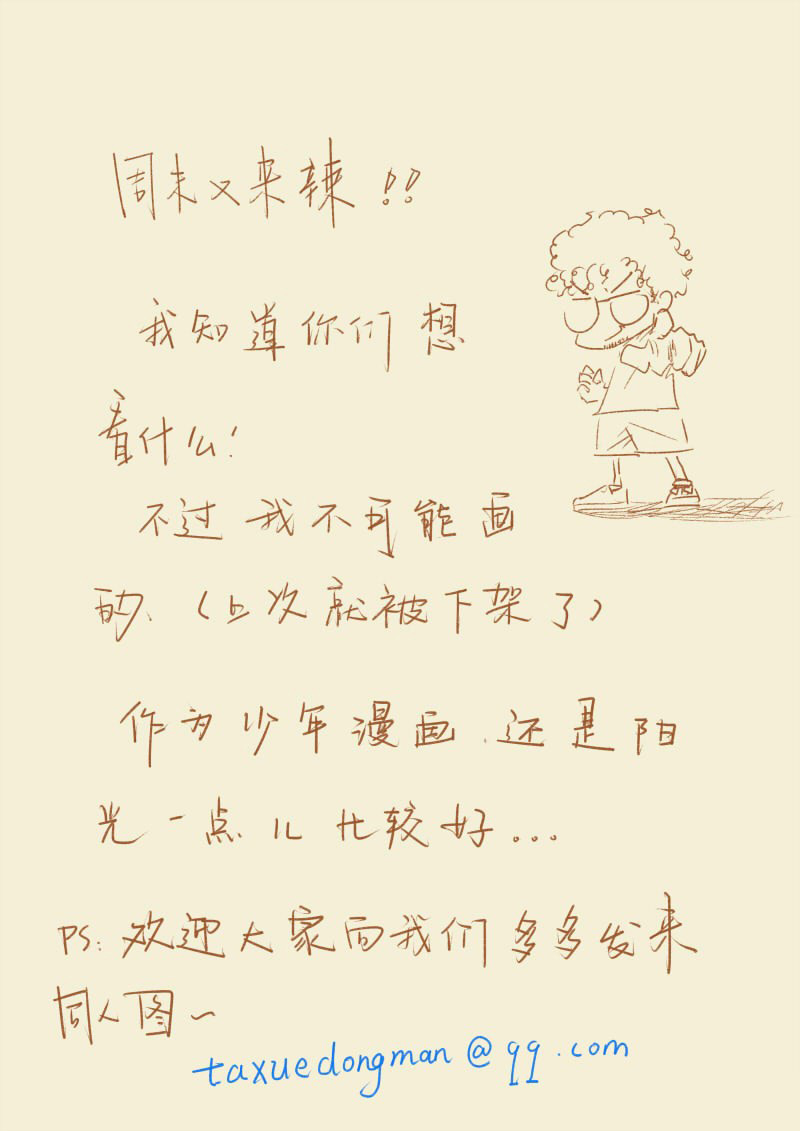 周末又来辣!!
我知道你们想
看什么!
不过我不可能画
的、(上次就被下架了)
作为少年漫画、还是阳
光一点儿比较好...
PS:欢迎大家向我们多多发来
同人图~
taxuedongman@qq.com